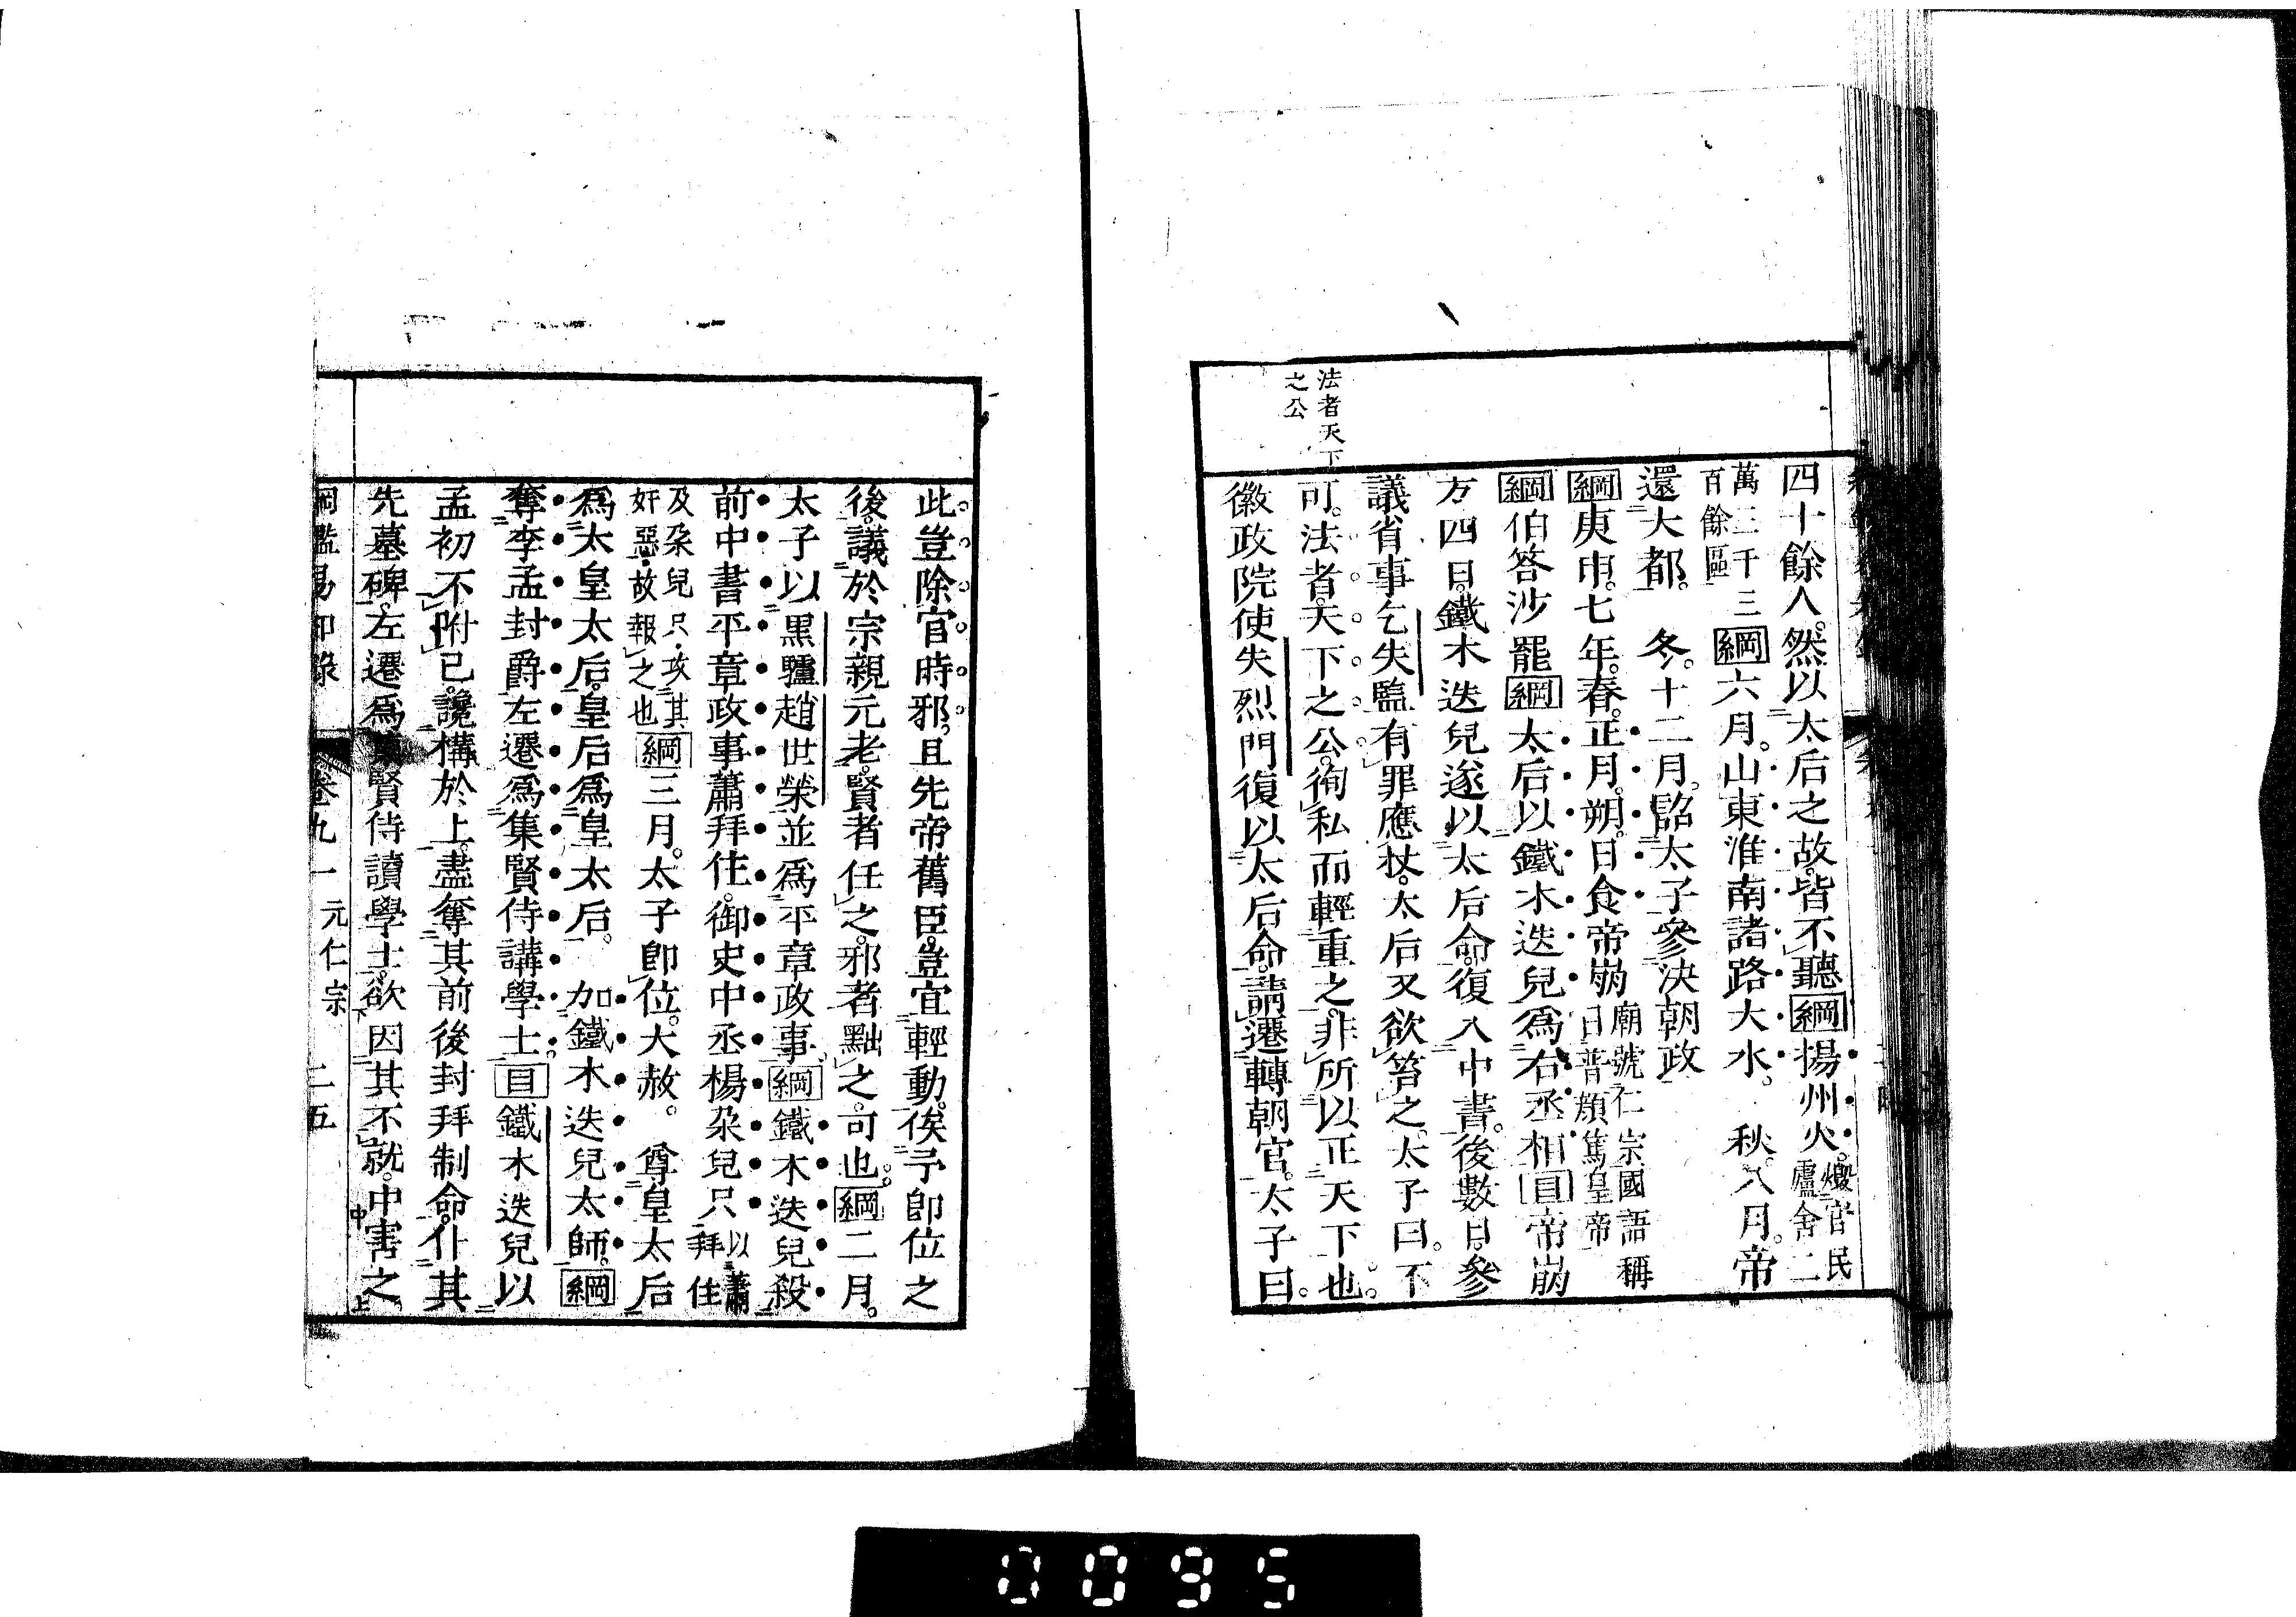 法者天下
之公
四十餘人。然以太后之故。皆不聽綱揚州火。燬官民廬舍二
萬三千三百餘區綱六月。山東淮南諸路大水。秋。八月。帝
還大都。冬。十二月。詔太子參決朝政
綱庚申。七年。春。正月。朔。日食帝崩廟號仁宗國語稱曰普顏篤皇帝
綱伯答沙罷綱太后以鐵木迭兒爲右丞相目帝崩
方四日。鐵木迭兒遂以太后命。復入中書。後數日。參
議省事乞失監有罪應杖。太后又欲笞之。太子曰。不
可。法者。天下之公。徇私而輕重之。非所以正天下也。
徽政院使失烈門復以太后命。請遷轉朝官。太子曰。
此豈除官時邪。且先帝舊臣。豈宜輕動。俟予卽位之
後。議於宗親元老。賢者任之。邪者黜之。可也。綱二月。
太子以黑驢趙世榮並爲平章政事。綱鐵木迭兒殺
前中書平章政事蕭拜住。御史中丞楊朶兒只以蕭拜住
及朶兒只攻其奸惡故報之也綱三月。太子卽位。大赦。尊皇太后
爲太皇太后。皇后爲皇太后。加鐵木迭兒太師。綱
奪李孟封爵左遷爲集賢侍講學士。目鐵木迭兒以
孟初不附已。讒構於上。盡奪其前後封拜制命。仆其
先墓碑。左遷爲集賢侍讀學士。欲因其不就。中害之。
綱鑑易知錄 卷九一 元仁宗 二五
0095